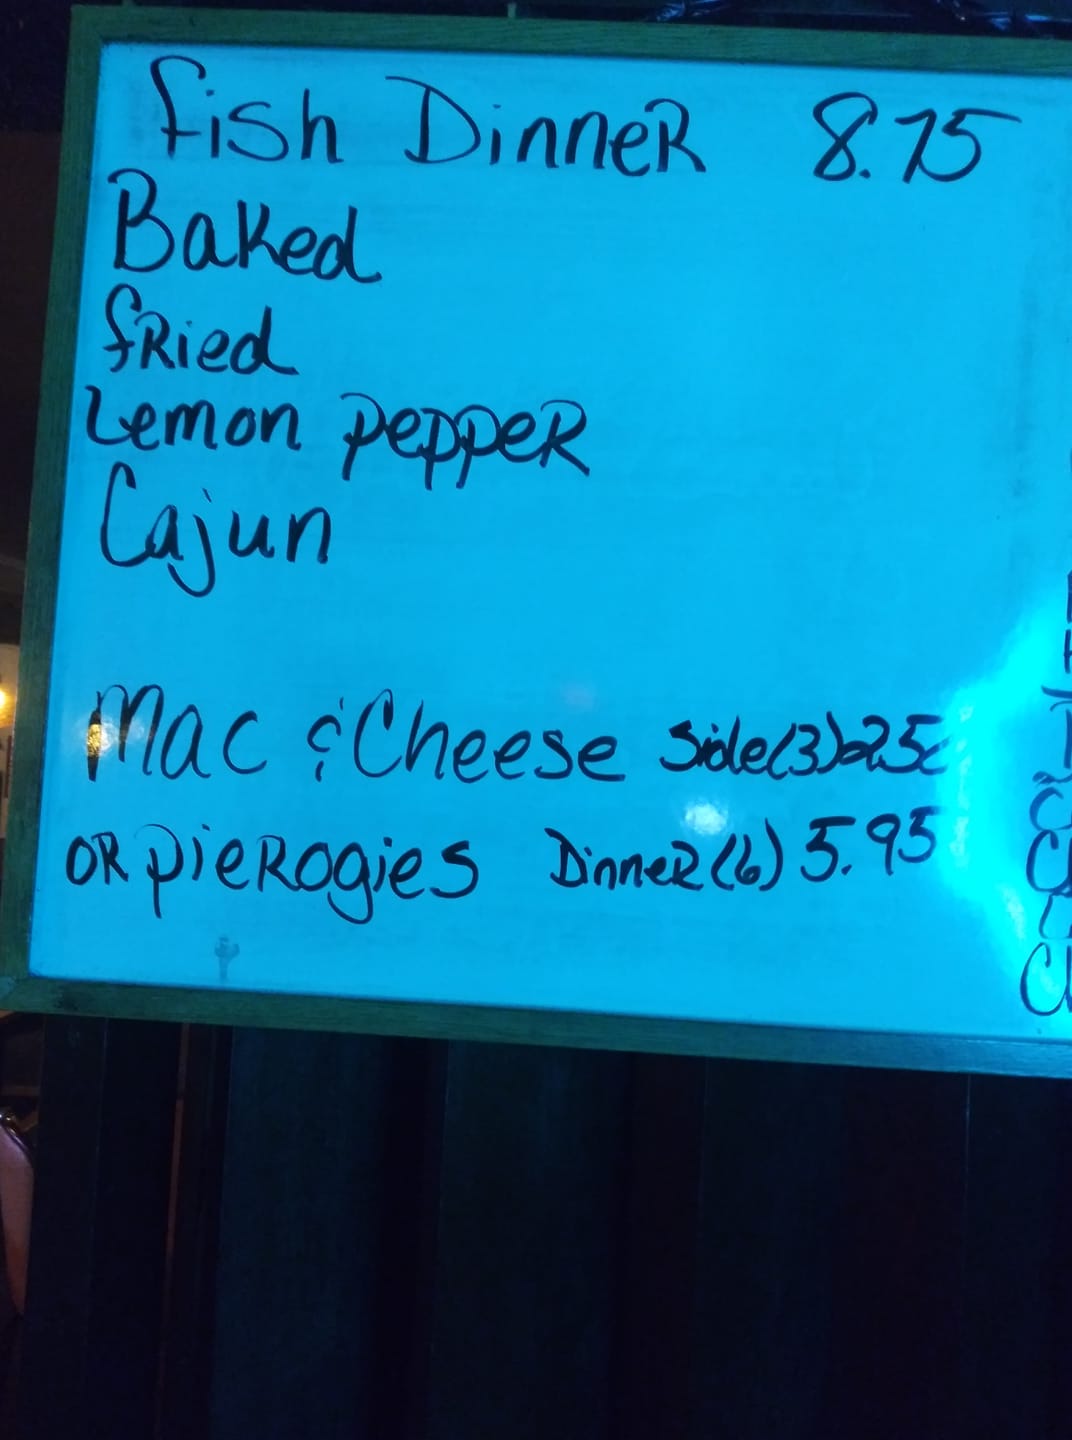 Fish Dinner 8.75
Baked
Fried
Lemon Pepper
Cajun
Mac & Cheese Side (3) 2.50
OR Pierogies Dinner (6) 5.95